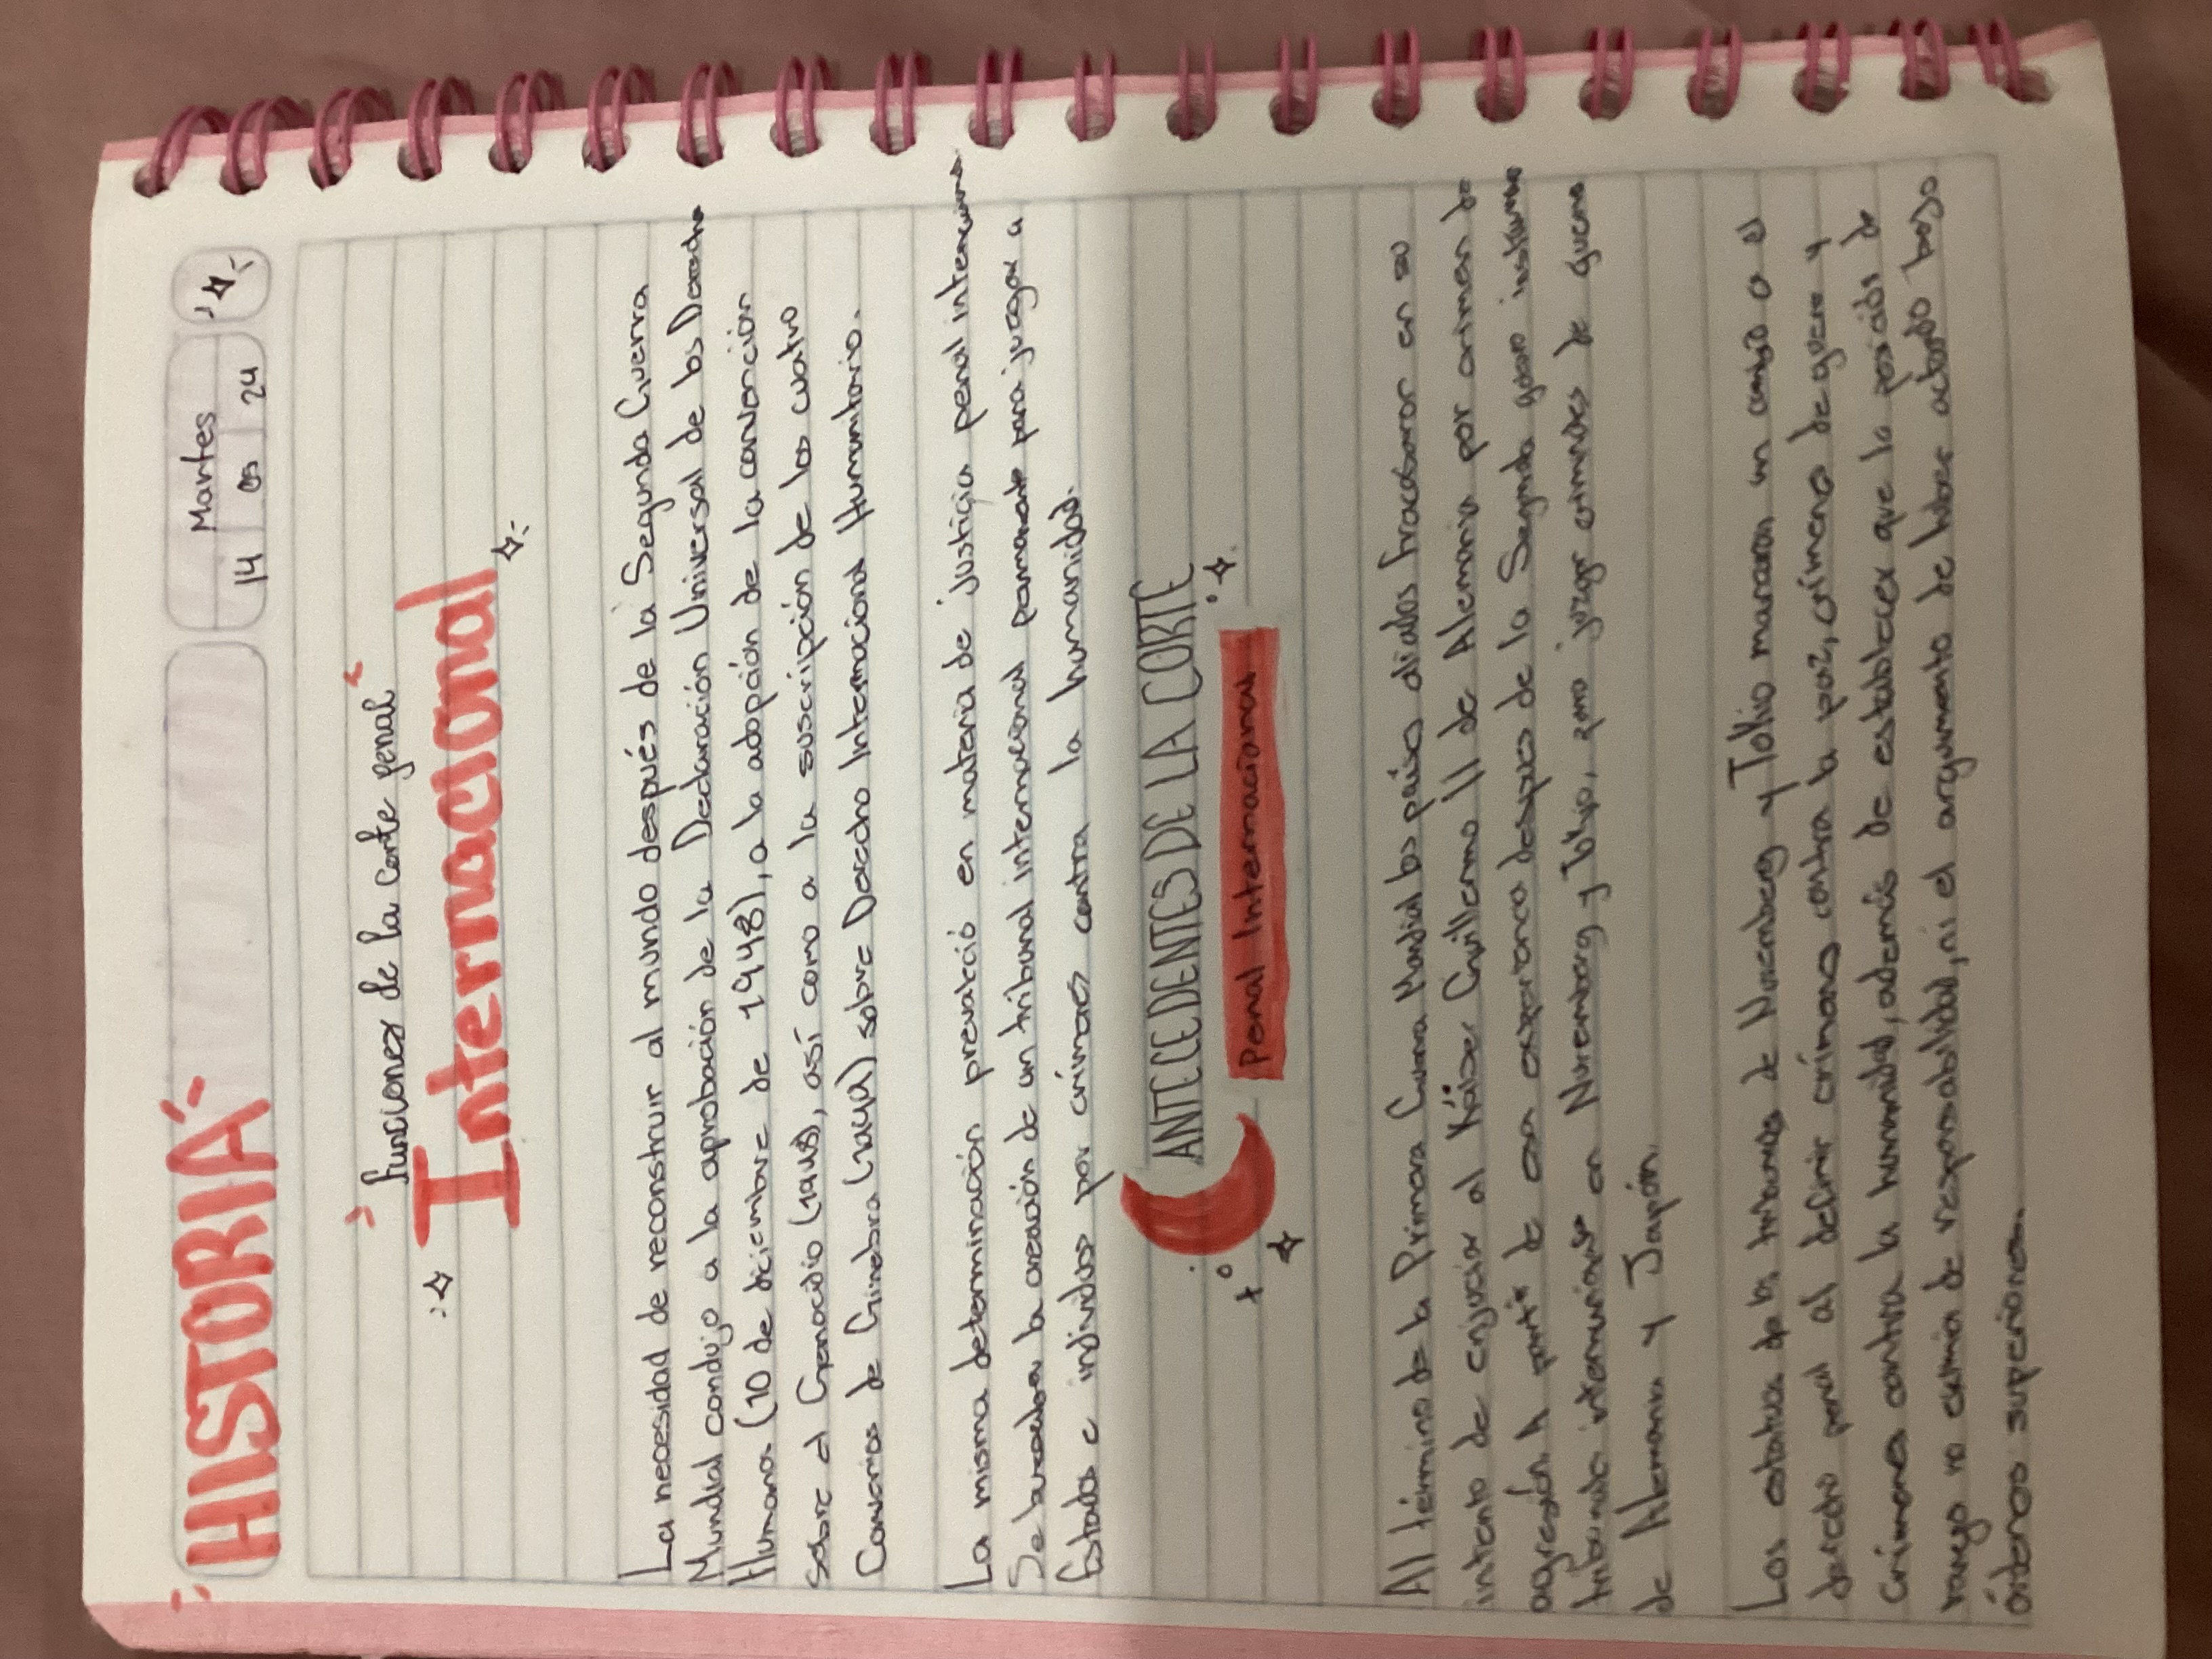 HISTORIA
Martes
14 05 24
"funciones de la corte penal"
Internacional
La necesidad de reconstruir al mundo después de la Segunda Guerra
Mundial condujo a la aprobación de la Declaración Universal de los Derecho
Humanos (10 de diciembre de 1948), a la adopción de la convención
sobre el Genocidio (1948), así como a la suscripción de los cuatro
Convenios de Ginebra (1949) sobre Derecho Internacional Humanitario.
La misma determinación prevaleció en materia de justicia penal internacional
Se buscaba la creación de un tribunal internacional permanente para juzgar a
Estados e individuos por crímenes contra la humanidad.
ANTECEDENTES DE LA CORTE
Penal Internacional
Al término de la Primera Guerra Mundial los países aliados fracasaron en su
intento de enjuiciar al Káiser Guillermo II de Alemania por crimen de
agresión A partir de esa experiencia despues de la Segunda guerra
tribunales internacionales en Nuremberg y Tokyo, para juzgar criminales de guerra
de Alemania y Japón.
Los estatutos de los tribunales de Nuremberg y Tokio marcaron un cambio a el
derecho penal al definir crímenes contra la paz, crímenes de guerra y
Crímenes contra la humanidad, además de establecer que la posición de
rango no exime de responsabilidad, ni el argumento de haber actuado bajo
órdenes superiores.